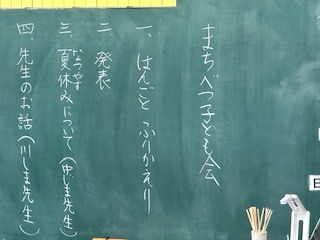 まちべつ子ども会
一、はんごと ふりかえり
二、発表
三、夏休みについて(中じま先生)
なつやす
四、先生のお話(川しま先生)